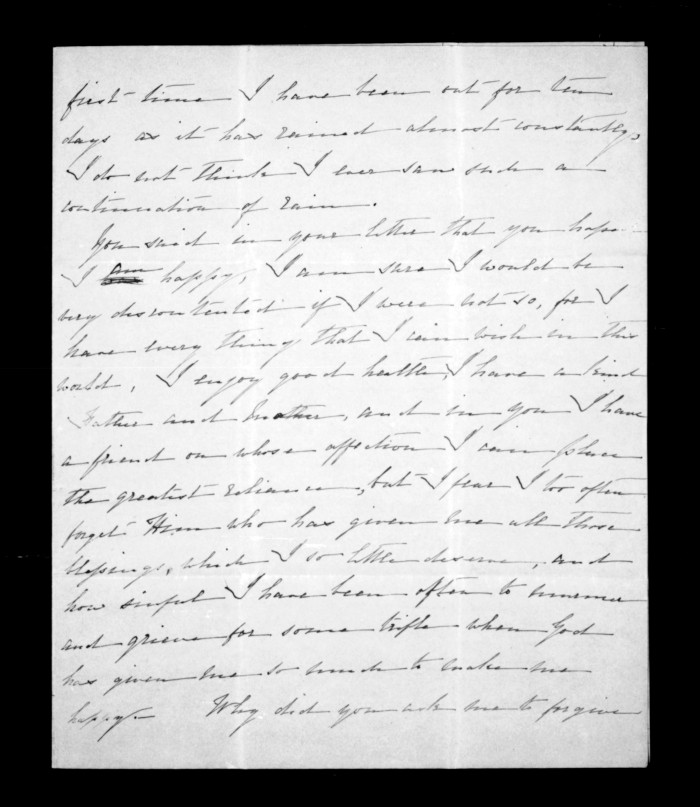 first time I have been out for ten
days as it has rained almost constantly,
I do not think I ever saw such a
continuation of rain.
You said in your letter that you hope
I am happy, I am sure I would be
very discontented if I were not so, for I
have every thing that I can wish in this
world, I enjoy good health, I have a kind
Father and Mother, and in you I have
a friend on whose affection I can place
the greatest reliance, but I fear I too often
forget Him who has given me all those
blessings, which I so little deserve, and
how sinful I have been often to murmur
and grieve for some trifle when God
has given me so much to make me
happy— Why did you ask me to forgive